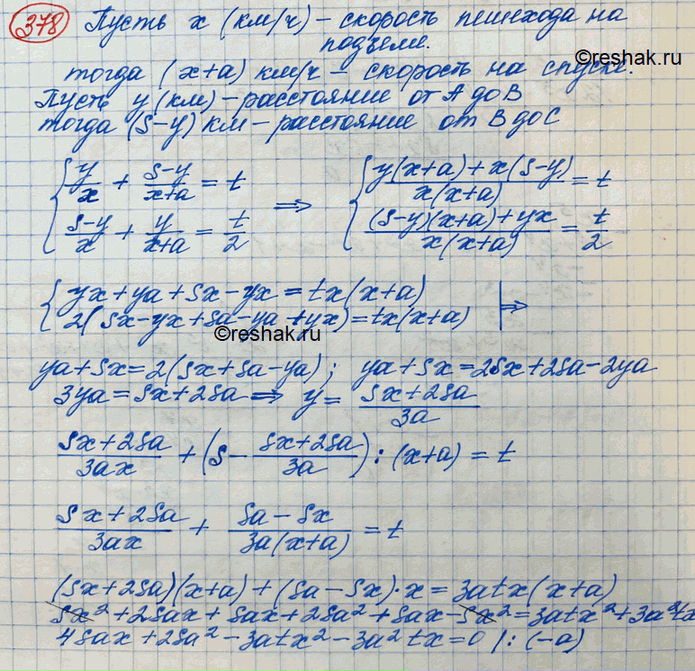 378 Пусть x (км/ч) – скорость пешехода на
подъеме.
©reshak.ru
тогда (x+a) км/ч – скорость на спуске.
Пусть y (км) – расстояние от A до B
тогда (s-y) км – расстояние от B до C
{ y/x + (s-y)/(x+a) = t ⇒ { (y(x+a)+x(s-y))/(x(x+a)) = t
{ (s-y)/x + y/(x+a) = t/2 { ((s-y)(x+a)+yx)/(x(x+a)) = t/2
{ yx+ya+sx-yx=tx(x+a) |⇒
{ 2(sx-yx+sa-ya+yx)=tx(x+a)
©reshak.ru
ya+sx=2(sx+sa-ya); ya+sx=2sx+2sa-2ya
3ya=sx+2sa ⇒ y= (sx+2sa)/(3a)
(sx+2sa)/(3ax) + (s - (sx+2sa)/(3a)) : (x+a) = t
(sx+2sa)/(3ax) + (sa-sx)/(3a(x+a)) = t
(sx+2sa)(x+a)+(sa-sx)·x=3atx(x+a)
sx²+2sax+sax+2sa²+sax-sx²=3atx²+3a²tx
4sax+2sa²-3atx²-3a²tx=0 |:(-a)